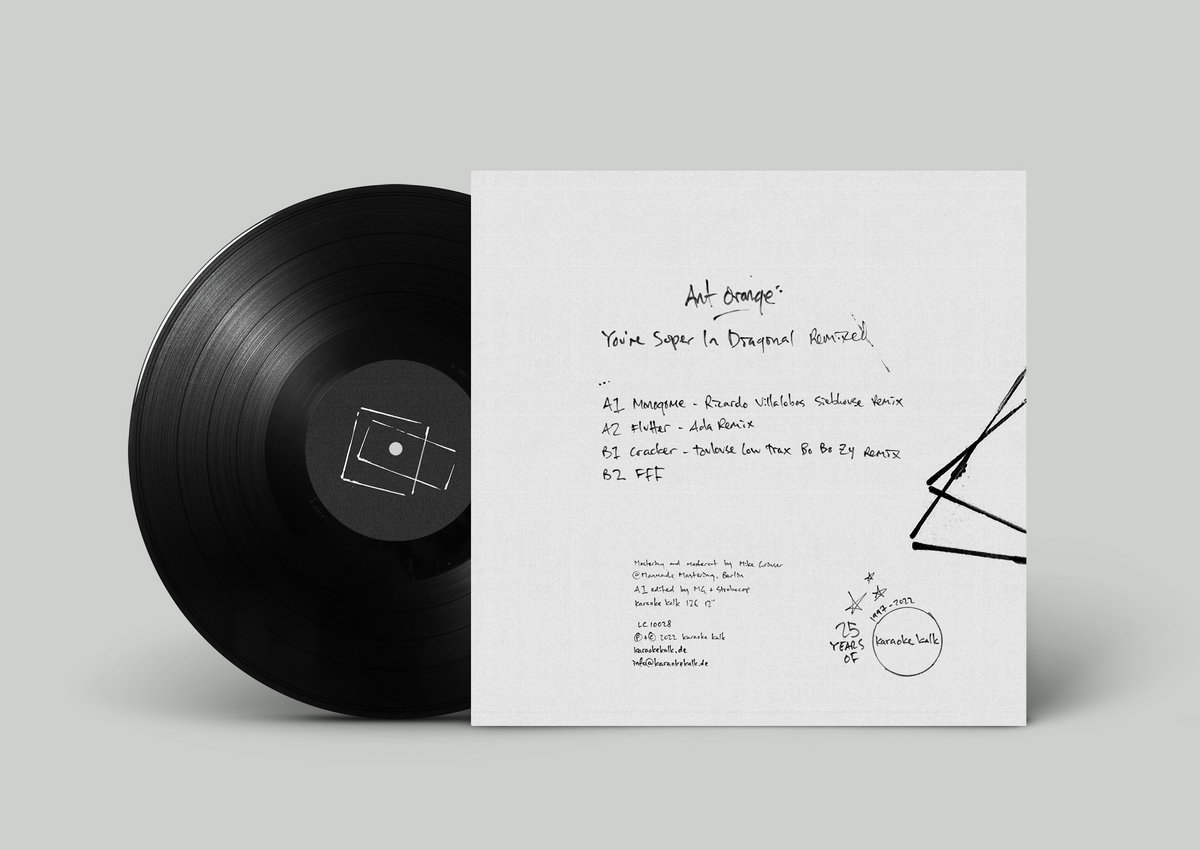 Ant Orange:
You're Super In Diagonal Remixed
...
A1 Monogome - Ricardo Villalobos Siebhouse Remix
A2 Flutter - Ada Remix
B1 Cracker - Toulouse Low Trax Bo Bo Zy Remix
B2 FFF
Mastering and mastercut by Mike Grinser
@Manmade Mastering, Berlin
A1 edited by MG + Strobocop
karaoke kalk 126 12"
LC 10028
℗+© 2022 karaoke kalk
karaokekalk.de
info@karaokekalk.de
1997-2022
25
YEARS
OF
karaoke kalk